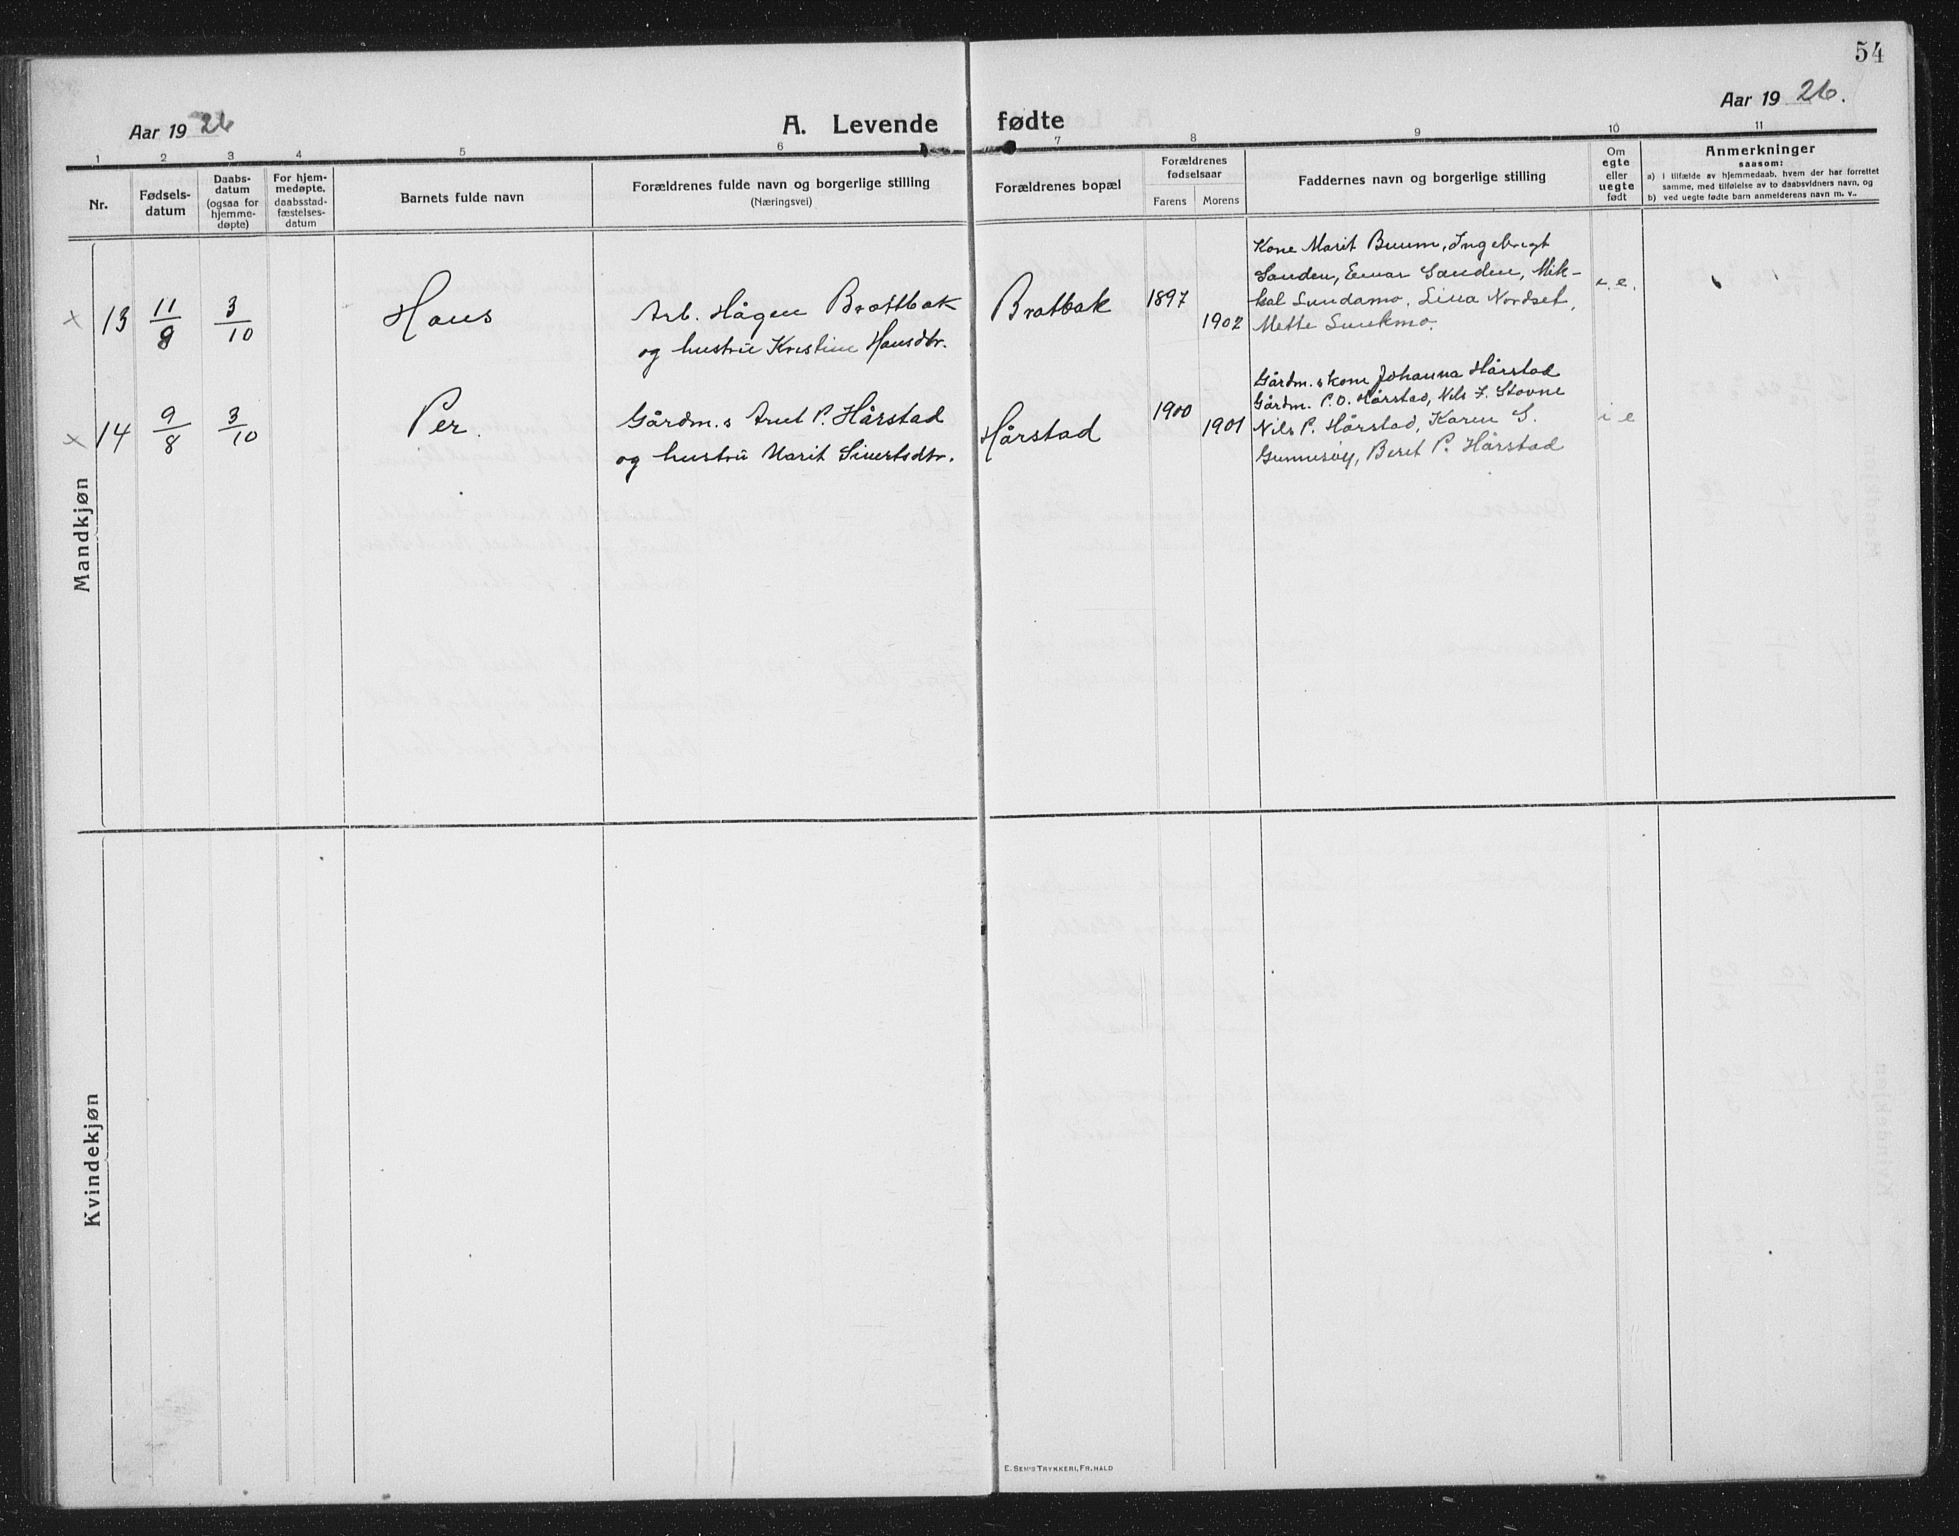 54
Aar 19 26
A. Levende fødte
Aar 19 26.
1 2 3 4 5 6 7 8 9 10 11
Nr.
Fødsels-
datum
Daabs-
datum
(ogsaa for
hjemme-
døpte)
For hjem-
medøpte,
daabsstad-
fæstelses-
datum
Barnets fulde navn
Forældrenes fulde navn og borgerlige stilling
(Næringsvei)
Forældrenes bopæl
Forældrenes
fødselsaar
Farens Morens
Faddernes navn og borgerlige stilling
Om
egte
eller
uegte
født
Anmerkninger
saasom:
a) i tilfælde av hjemmedaab, hvem der har forrettet
samme, med tilføielse av to daabsvidners navn, og
b) ved uegte fødte barn anmelderens navn m. v..
Mandkjøn
x 13 11/8 3/10 Hans
Arb. Hågen Brattbak
og hustru Kristine Hansdtr.
Bratbak
1897
1902
Kone Marit Buum, Ingebrigt
Sanden, Einar Sanden, Mik-
kal Lundamo, Lina Nordset,
Mette Lunkmo.
x 14 9/8 3/10 Per.
Gårdm.s Arnt P. Hårstad
og hustru Marit Sivertsdtr.
Hårstad
1900
1901
Gårdm.skone Johanna Hårstad
Gårdm. P.O. Hårstad, Nils J. Stovne
Nils P. Hårstad, Karen S.
Beret P. Hårstad
i e
Kvindekjøn
E. SEM'S TRYKKERI, FR.HALD